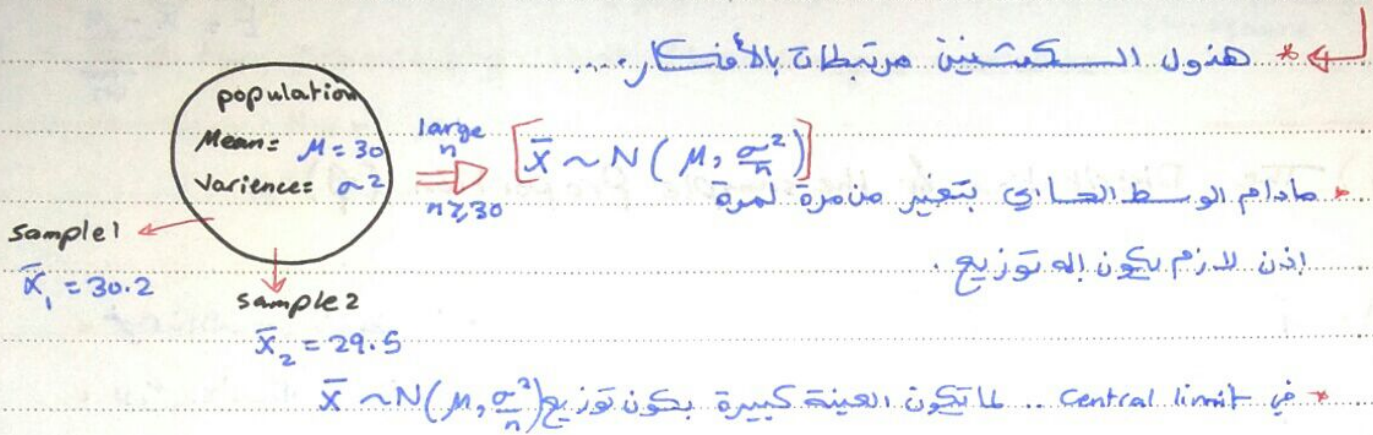 * هذول الكمتين مرتبطات بالأفكار....
population
Mean = μ = 30
Varience = σ²
large
n
n ≥ 30
[x̄ ~ N(μ, σ²/n)]
* مادام الوسط الحسابي بتغير من مرة لمرة
إذن لازم يكون إله توزيع.
sample1
x̄₁ = 30.2
sample2
x̄₂ = 29.5
* في central limit .. لما تكون العينة كبيرة بكون توزيع x̄ ~ N(μ, σ²/n)